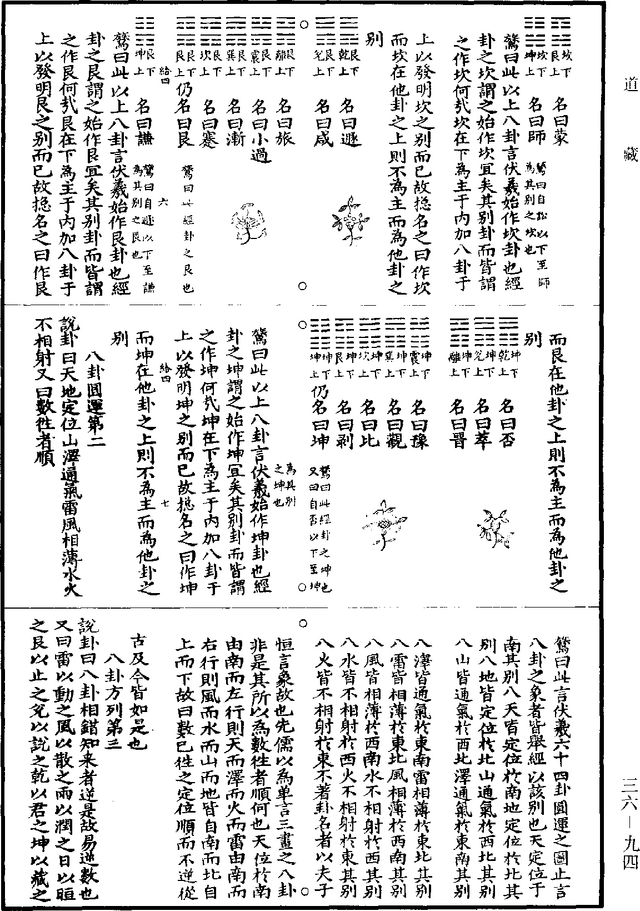 道藏
坎下艮上 名曰蒙
坎下坤上 名曰師 鶩曰自訟以下至師為其别之坎也
鶩曰此以上八卦言伏羲始作坎卦也經
卦之坎謂之始作坎宜矣其别卦而皆謂
之作坎何哉坎在下為主于内加八卦于
上以發明坎之别而已故揔名之曰作坎
而坎在他卦之上則不為主而為他卦之
别
艮下乾上 名曰遯
艮下兌上 名曰咸
艮下離上 名曰旅
艮下震上 名曰小過
艮下巽上 名曰漸
艮下坎上 名曰蹇
艮下艮上 仍名曰艮 鶩曰此經卦之艮也
給四 六
艮下坤上 名曰謙 鶩曰自遯以下至謙為其别之艮也
鶩曰此以上八卦言伏羲始作艮卦也經
卦之艮謂之始作艮宜矣其别卦而皆謂
之作艮何哉艮在下為主于内加八卦于
上以發明艮之别而已故揔名之曰作艮
而艮在他卦之上則不為主而為他卦之
别
坤下乾上 名曰否
坤下兌上 名曰萃
坤下離上 名曰晉
坤下震上 名曰豫
坤下巽上 名曰觀
坤下坎上 名曰比
坤下艮上 名曰剥
坤下坤上 仍名曰坤 鶩曰此經卦之坤也又曰自否以下至坤為其别之坤也
鶩曰此以上八卦言伏羲始作坤卦也經
卦之坤謂之始作坤宜矣其别卦而皆謂
之作坤何哉坤在下為主于内加八卦于
上以發明坤之别而已故揔名之曰作坤
給四 七
而坤在他卦之上則不為主而為他卦之
别
八卦圓運第二
說卦曰天地定位山澤通氣雷風相薄水火
不相射又曰數徃者順
鶩曰此言伏羲六十四卦圓運之圖止言
八卦之象者皆舉經以該别也天定位于
南其别八天皆定位於南地定位於北其
别八地皆定位於北山通氣於西北其别
八山皆通氣於西北澤通氣於東南其别
八澤皆通氣於東南雷相薄於東北其别
八雷皆相薄於東北風相薄於西南其别
八風皆相薄於西南水不相射於西其别
八水皆不相射於西火不相射於東其别
八火皆不相射於東不著卦名者以夫子
恒言象故也先儒以為單言三畫之八卦
非是其所以為數徃者順何也天位於南
由南而左行則天而澤而火而雷由南而
右行則風而水而山而地皆自南而北自
上而下故曰數已徃之定位順而不逆從
古及今皆如是也
八卦方列第三
說卦曰八卦相錯知來者逆是故易逆數也
又曰雷以動之風以散之雨以潤之日以晅
之艮以止之兌以說之乾以君之坤以藏之
三六－九四